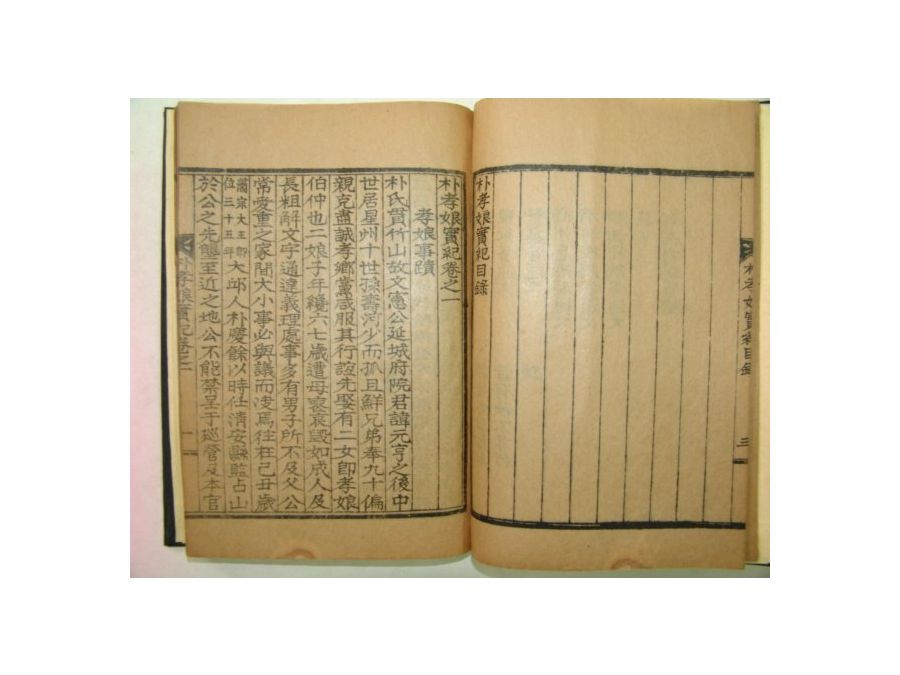 朴孝娘實紀目錄
朴孝娘實紀卷之一
孝娘事蹟
朴氏貫竹山故文憲公延城府院君諱元亨之後中
世居星州十世孫壽河少而孤且鮮兄弟奉九十偏
親克盡誠孝鄕黨咸服其行誼先娶有二女卽孝娘
伯仲也二娘子年纔六七歲遭母喪哀毁如成人及
長粗解文字通達義理處事多有男子所不及父公
常愛重之家間大小事必與議而決焉往在己丑歲
肅宗大王卽
位三十五年
大邱人朴慶餘以時任淸安縣監占山
於公之先壟至近之地公不能禁呈于巡營及本官
朴孝娘實紀卷之一
一
三